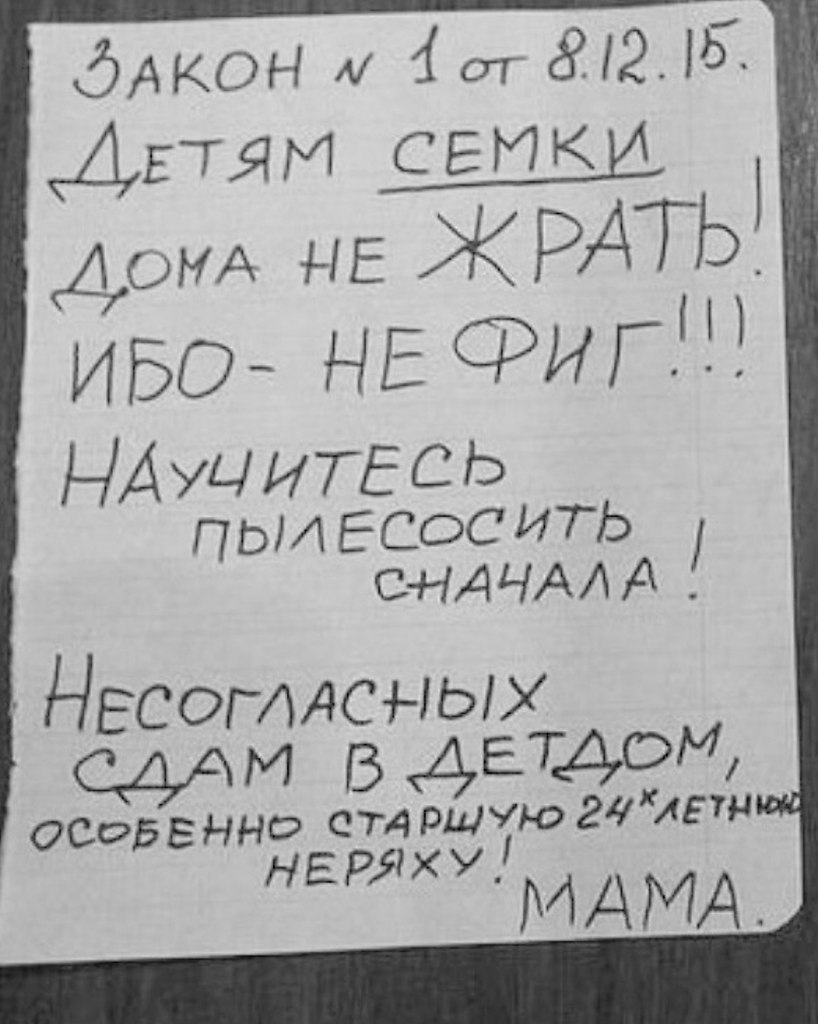 ЗАКОН N 1 ОТ 8.12.15.
ДЕТЯМ СЕМКИ
ДОМА НЕ ЖРАТЬ!
ИБО - НЕ ФИГ!!!
НАУЧИТЕСЬ
ПЫЛЕСОСИТЬ
СНАЧАЛА!
НЕСОГЛАСНЫХ
СДАМ В ДЕТДОМ,
ОСОБЕННО СТАРШУЮ 24х ЛЕТНЮЮ
НЕРЯХУ!
МАМА.